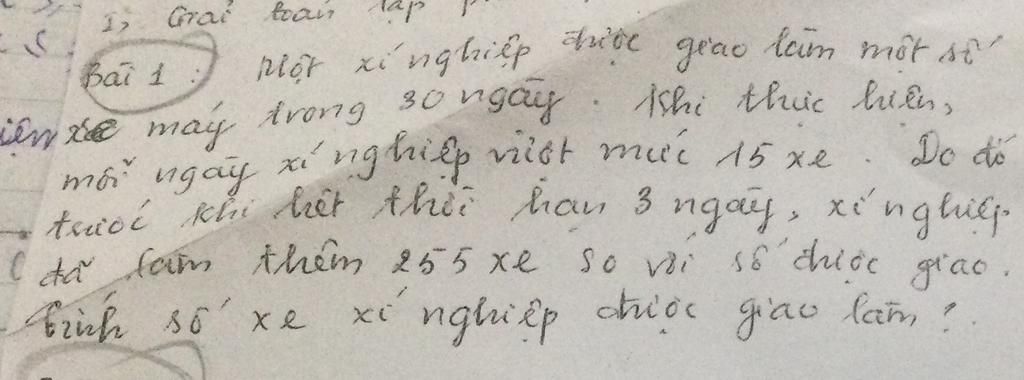 I, Giải toán lập
Bài 1: Một xí nghiệp được giao làm một số
xe máy trong 30 ngày. Khi thực hiện,
mỗi ngày xí nghiệp vượt mức 15 xe. Do đó
trước khi hết thời hạn 3 ngày, xí nghiệp
đã làm thêm 255 xe so với số được giao.
Tính số xe xí nghiệp được giao làm?